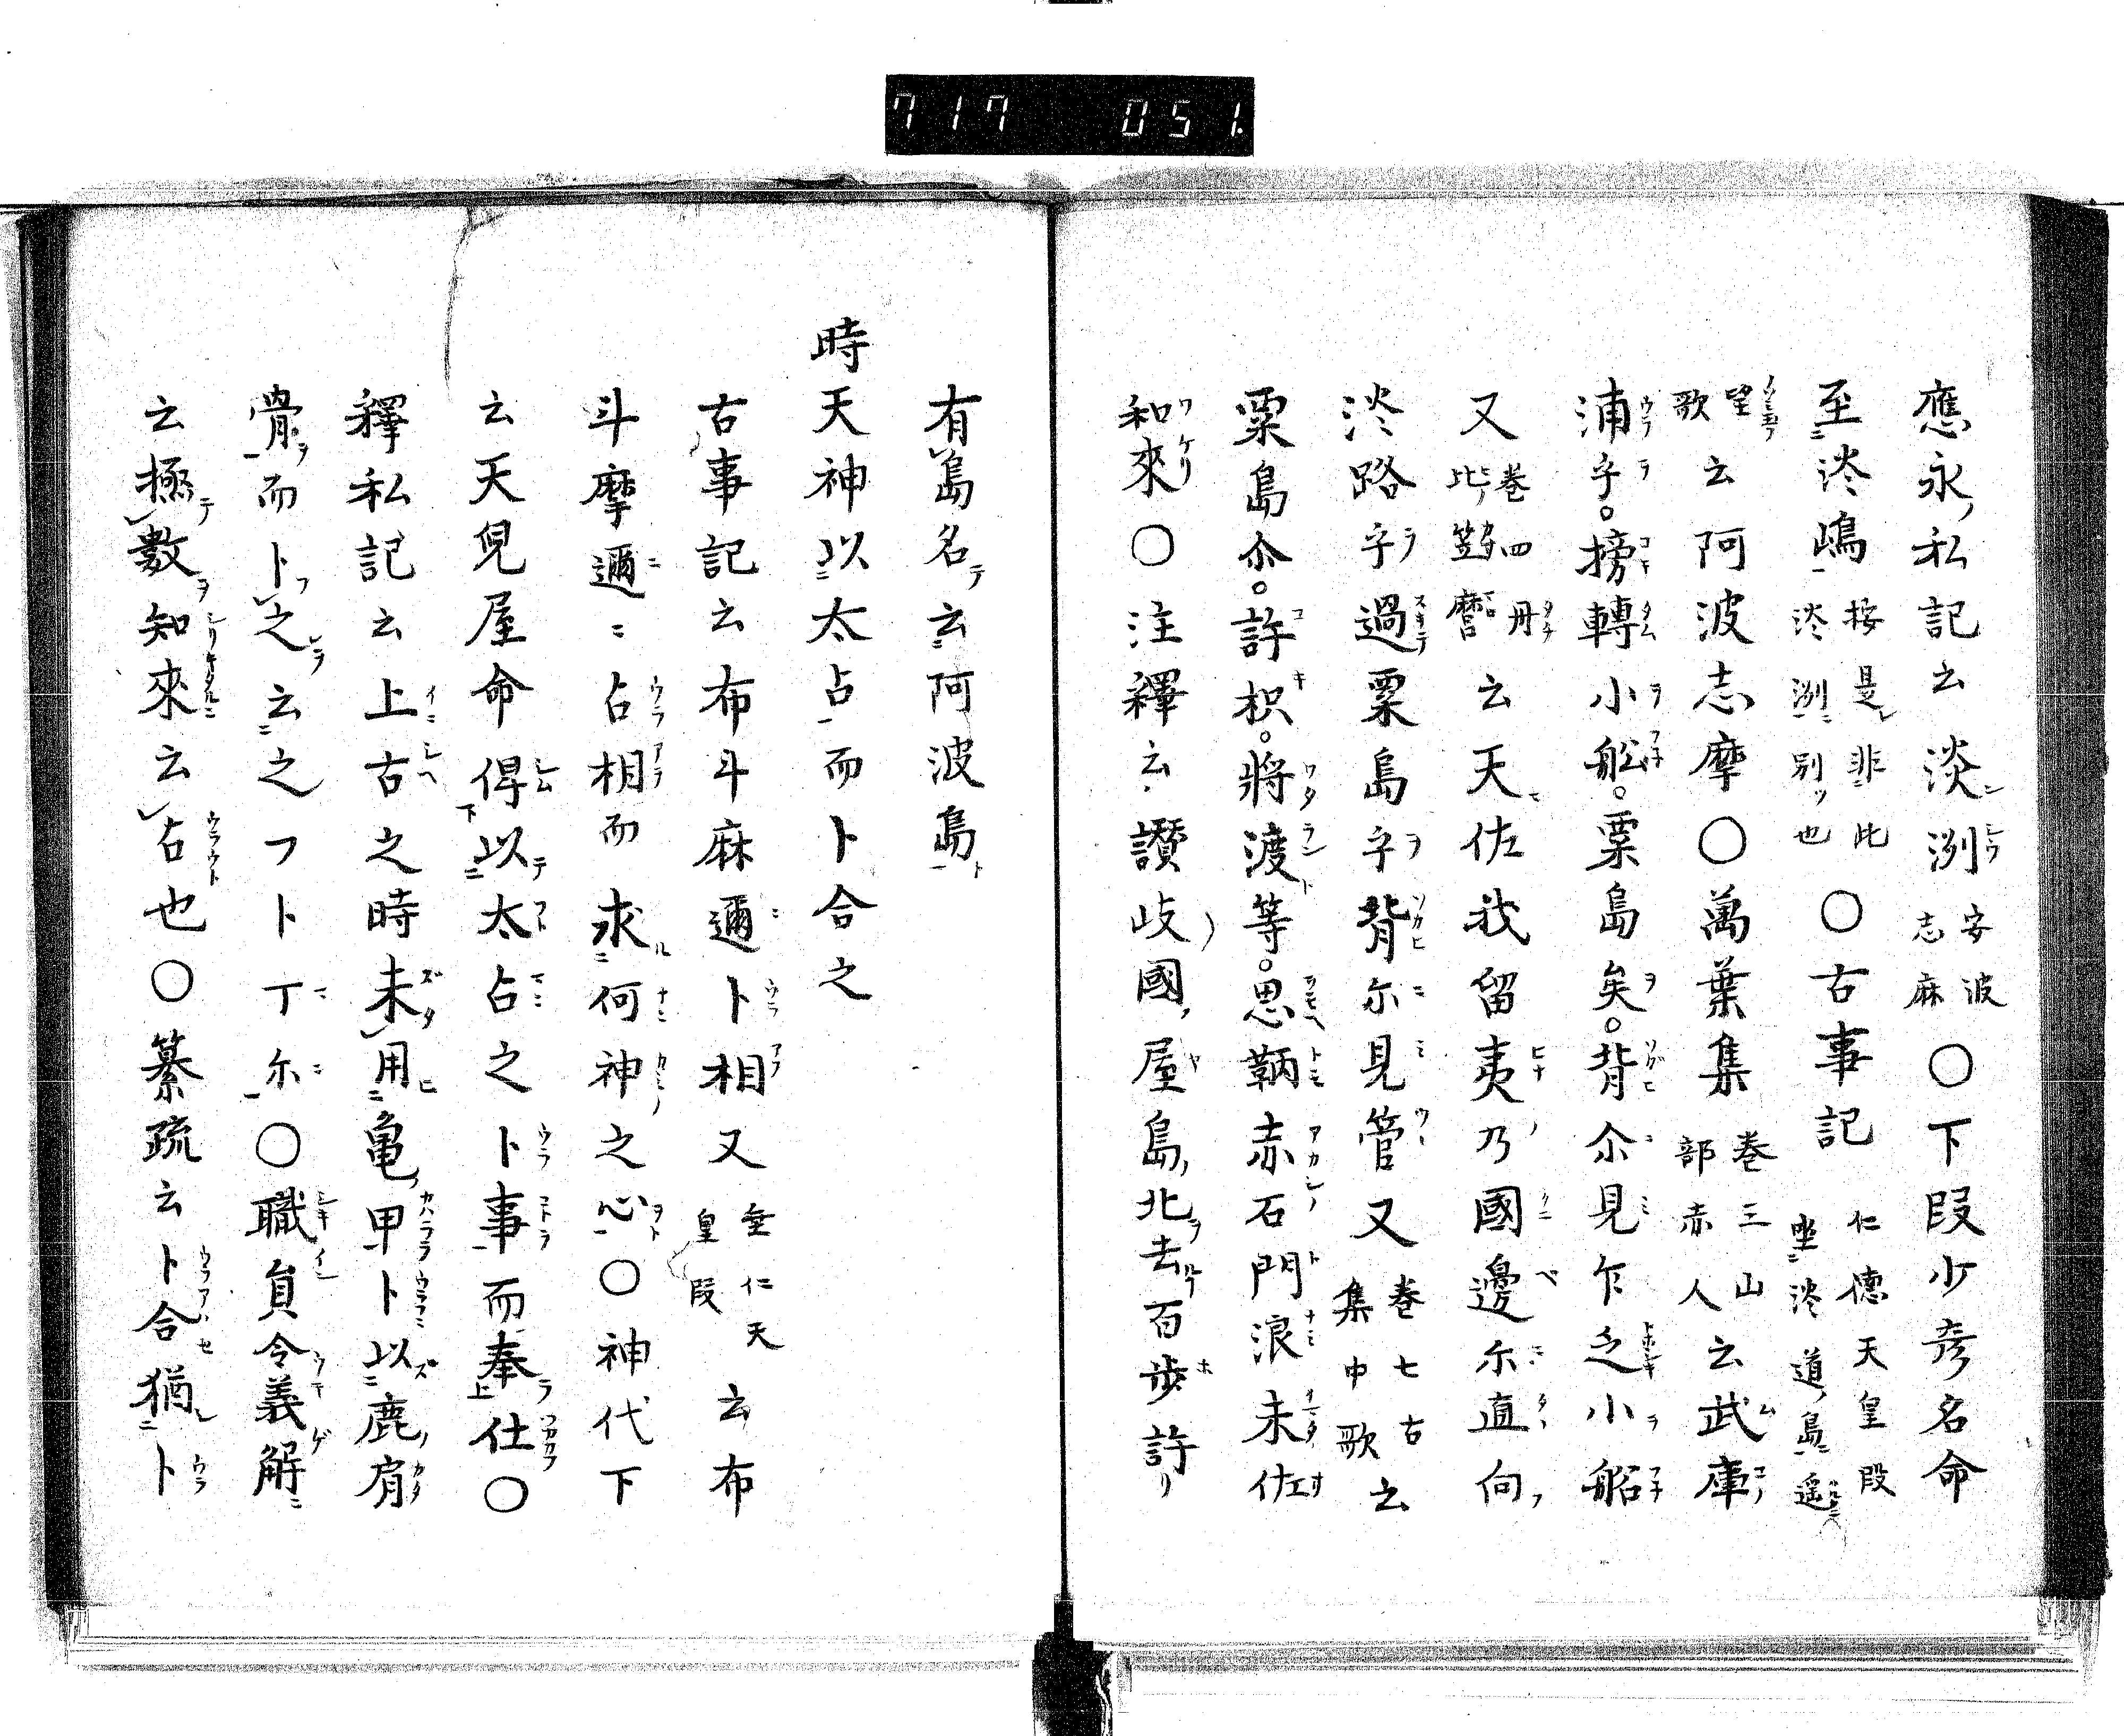 717 051.
應永私記云淡洲安波志麻〇下段少彦名命
至淡嶋按是非此淡洲別也〇古事記仁德天皇段坐淡道島遥
望歌云阿波志摩〇萬葉集卷三山部赤人云武庫
浦乎。榜轉小舩。粟島矣。背尒見乍乏小船
又卷四丹比笠麿云天佐我留夷乃國邊尓直向
淡路乎過粟島乎背尓見管又卷七古集中歌云
粟島尒。許枳。將渡等。思鞆赤石門浪未佐
和來〇注釋云讚岐國屋島北去百步許
有島名云阿波島
時天神以太占而卜合之
古事記云布斗麻邇卜相又垂仁天皇段云布
斗摩邇々占相而求何神之心〇神代下
云天兒屋命俾以太占之卜事而奉仕〇
釋私記云上古之時未用亀甲卜以鹿肩
骨而卜之云之フト丁尓〇職員令義解
云極數知來云占也〇纂疏云卜合猶卜